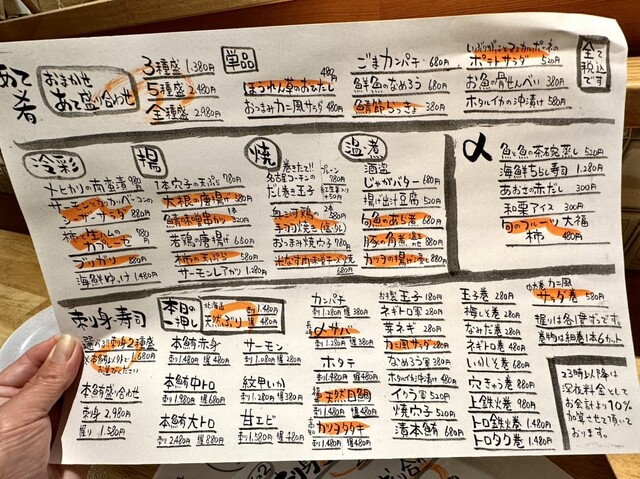 あて
肴
おまかせ
あて盛り合わせ
3種盛 1.380円
5種盛 2.480円
全種盛 2.980円
単品
ほうれん草のおひたし 480円
おつまみカニ風サラダ 480円
ごまカンパチ 680円
鮮魚のなめろう 680円
鯖節らっきょ 380円
いぶりがっことマスカルポーネの
ポテトサラダ 520円
お魚の骨せんべい 380円
ホタルイカの沖漬け 580円
全て
税込
です
冷彩
メヒカリの南蛮漬 980円
サーモンとカッパ
シーザーサラダ 880円
柿と生ハムの
カプレーゼ
ブリガリ 880円
海鮮ゆっけ 1.480円
揚
1本穴子の天ぷら 780円
大根の唐揚げ 580円
鯖味噌串カツ
若鶏の唐揚げ 680円
柿の天ぷら 580円
サーモンレアカツ 1.280円
焼
巻きたて!!
名古屋コーチンの
だし巻き玉子
プレーン 780円
紅生姜入り
+50円
手羽幻焼き
おつまみ焼穴子 780円
680円
温煮
酒盗
じゃがバター 680円
揚げ出汁豆腐 520円
旬魚のあら煮 680円
豚の角煮 880円
カレイの揚げ煮 880円
α
魚と魚の茶碗蒸し 520円
海鮮ちらし寿司 1.280円
あおさの赤だし 300円
和栗アイス 300円
旬のフルーツ大福
柿 480円
刺身寿司
選べるお刺身2種盛
1.680円
本鮪盛り合わせ
刺身 2.980円
握り 1.580円
本日の
一押し
北海道
天然ぶり
刺 1.480円
握 480円
本鮪赤身
刺 1.480円 握 480円
本鮪中トロ
刺 1.980円 握 680円
本鮪大トロ
刺 2.480円 握 880円
サーモン
刺 1.080円 握 280円
紋甲いか
刺 1.280円 握 380円
甘エビ
刺 1.580円 握 480円
カンパチ
刺 1.280円 握 380円
〆サバ
刺 1.280円 握 380円
ホタテ
刺 1.480円 握 480円
天然目鯛
刺 1.480円 握 480円
カツオタタキ
お手製玉子 180円
ネギトロ軍 280円
芽ネギ 280円
カニ風サラダ 280円
なめろう軍 380円
ホタルイカ沖漬け 480円
イクラ軍 520円
焼穴子 520円
漬本鮪 680円
玉子巻 280円
梅しそ巻 280円
なみだ巻 280円
ネギトロ巻 480円
いかしそ巻 680円
穴きゅう巻 880円
上鉄火巻 980円
トロ鉄火巻 1.480円
トロタク巻 1.480円
カニ風
サラダ巻 580円
握りは各1貫ずつです。
巻物は細巻1本6カット
23時以降は
深夜料金として
お会計より10%
加算させて頂いて
おります。